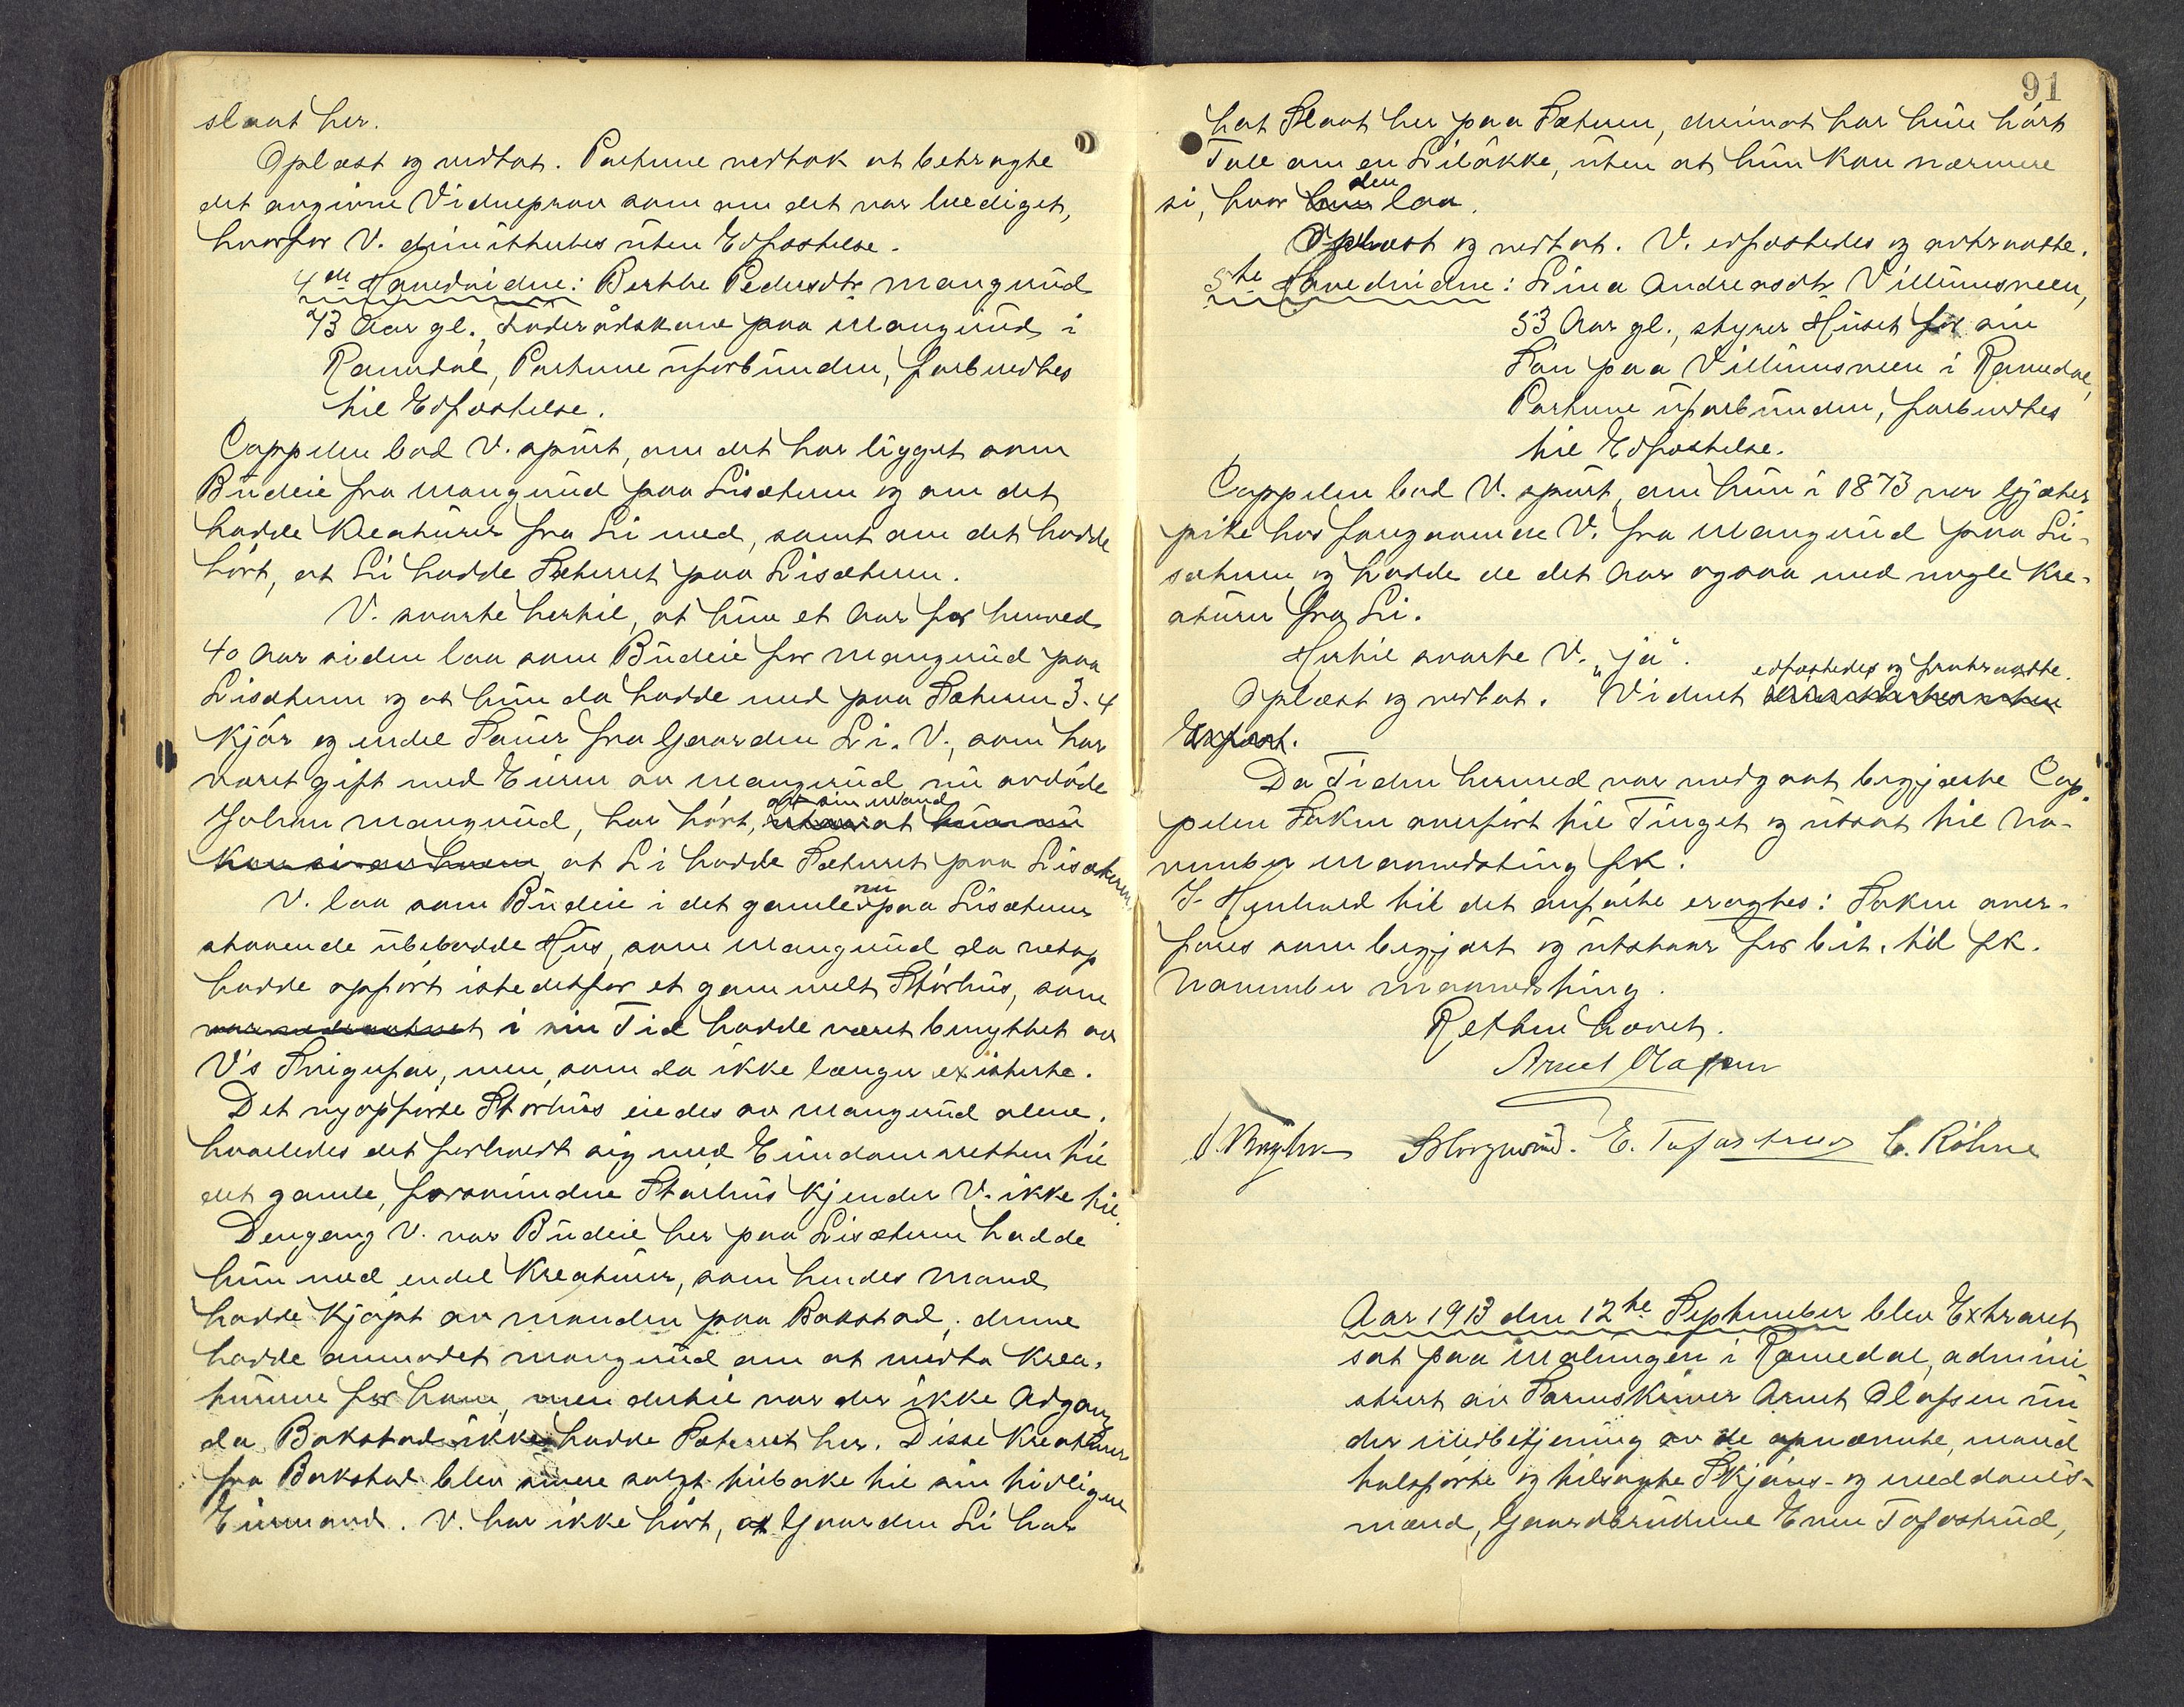 slaat her.
Oplæst og vedtat. Parterne vedtok at betragte
det avgivne Vidneprov som om det var beediget,
hvorfor V. dimitteredes uten Edfæstelse.
4de Hovedvidne: Berthe Pedersdtr Mangrud
73 Aar gl., Føderådskone paa Mangrud i
Romedal, Parterne uforbunden, forberedtes
til Edfæstelse.
Cappelen bad V. spurt, om det har ligget som
Budeie fra Mangrud paa Lisæteren og om det
hadde Kreaturer fra Li med, samt om det hadde
hørt, at Li hadde Sæterret paa Lisæteren.
V. svarte hertil, at hun et Aar for henved
40 Aar siden laa som Budeie for Mangrud paa
Lisæteren og at hun da hadde med paa Sæteren 3-4
Kjør og endel Sauer fra Gaarden Li. V., som har
været gift med Eieren av Mangrud nu avdøde
Johan Mangrud, har hørt, av sin Mand at hun nu
kan si av hvem, at Li hadde Sæterret paa Lisæteren.
V. laa som Budeie i det gamle nu paa Lisæteren
staaende ubebodde Hus, som Mangrud da netop
hadde opført istedetfor et gammelt Størhus, som
var nedraatnet i sin Tid hadde været benyttet av
V's Svigerfar, men, som da ikke længer existerte.
Det nyopførte Størhus eiedes av Mangrud alene,
hvorledes det forholdt sig med Eiendomsretten til
det gamle, forsvundne Størhus kjender V. ikke til.
Dengang V. var Budeie her paa Lisæteren hadde
hun med endel Kreaturer, som hendes Mand
hadde kjøpt av Manden paa Bakstad; denne
hadde anmodet Mangrud om at medta Krea-
turerne for ham, men dertil var der ikke Adgang
da Bakstad ikke hadde Sæterret her. Disse Kreaturer
fra Bakstad blev senere solgt tilbake til sin tidligere
Eiermand. V. har ikke hørt, at Gaarden Li har
91
hat Slaat her paa Sæteren, derimot har hun hørt
Tale om en Liløkke, uten at hun kan nærmere
si, hvor den laa.
Oplæst og vedtat. V. edfæstedes og avtraatte.
5te Hovedvidne: Lina Andreasdtr Villumsveen,
53 Aar gl., styrer Huset for sin
Søn paa Villumsveen i Romedal,
Parterne uforbunden, forberedtes
til Edfæstelse.
Cappelen bad V. spurt, om hun i 1873 var Gjæter
pike hos foregaaende V. fra Mangrud paa Li-
sæteren og hadde de det Aar ogsaa med nogle Kre-
aturer fra Li.
Hertil svarte V. „ja".
Oplæst og vedtat. Vidnet edfæstedes og fratraatte.
Da Tiden hermed var medgaat begjærte Cap-
pelen Saken overført til Tinget og utsat til No-
vember Maanedsting fk.
I Henhold til det anførte eragtes: Saken over-
føres som begjært og utstaar for bet. til fk.
November Maanedsting.
Retten hævet.
Arnet Olafsen
S Horgsrud. E. Tofastrud C. Röhne
Aar 1913 den 12te September blev Extraret
sat paa Malungen i Romedal, admini
strert av Sorenskriver Arnet Olafsen un
der Medbetjening av de opnævnte, mand
talsførte og tilsagte Skjøns- og Meddoms-
mænd, Gaardbrukerne Even Tofastrud,